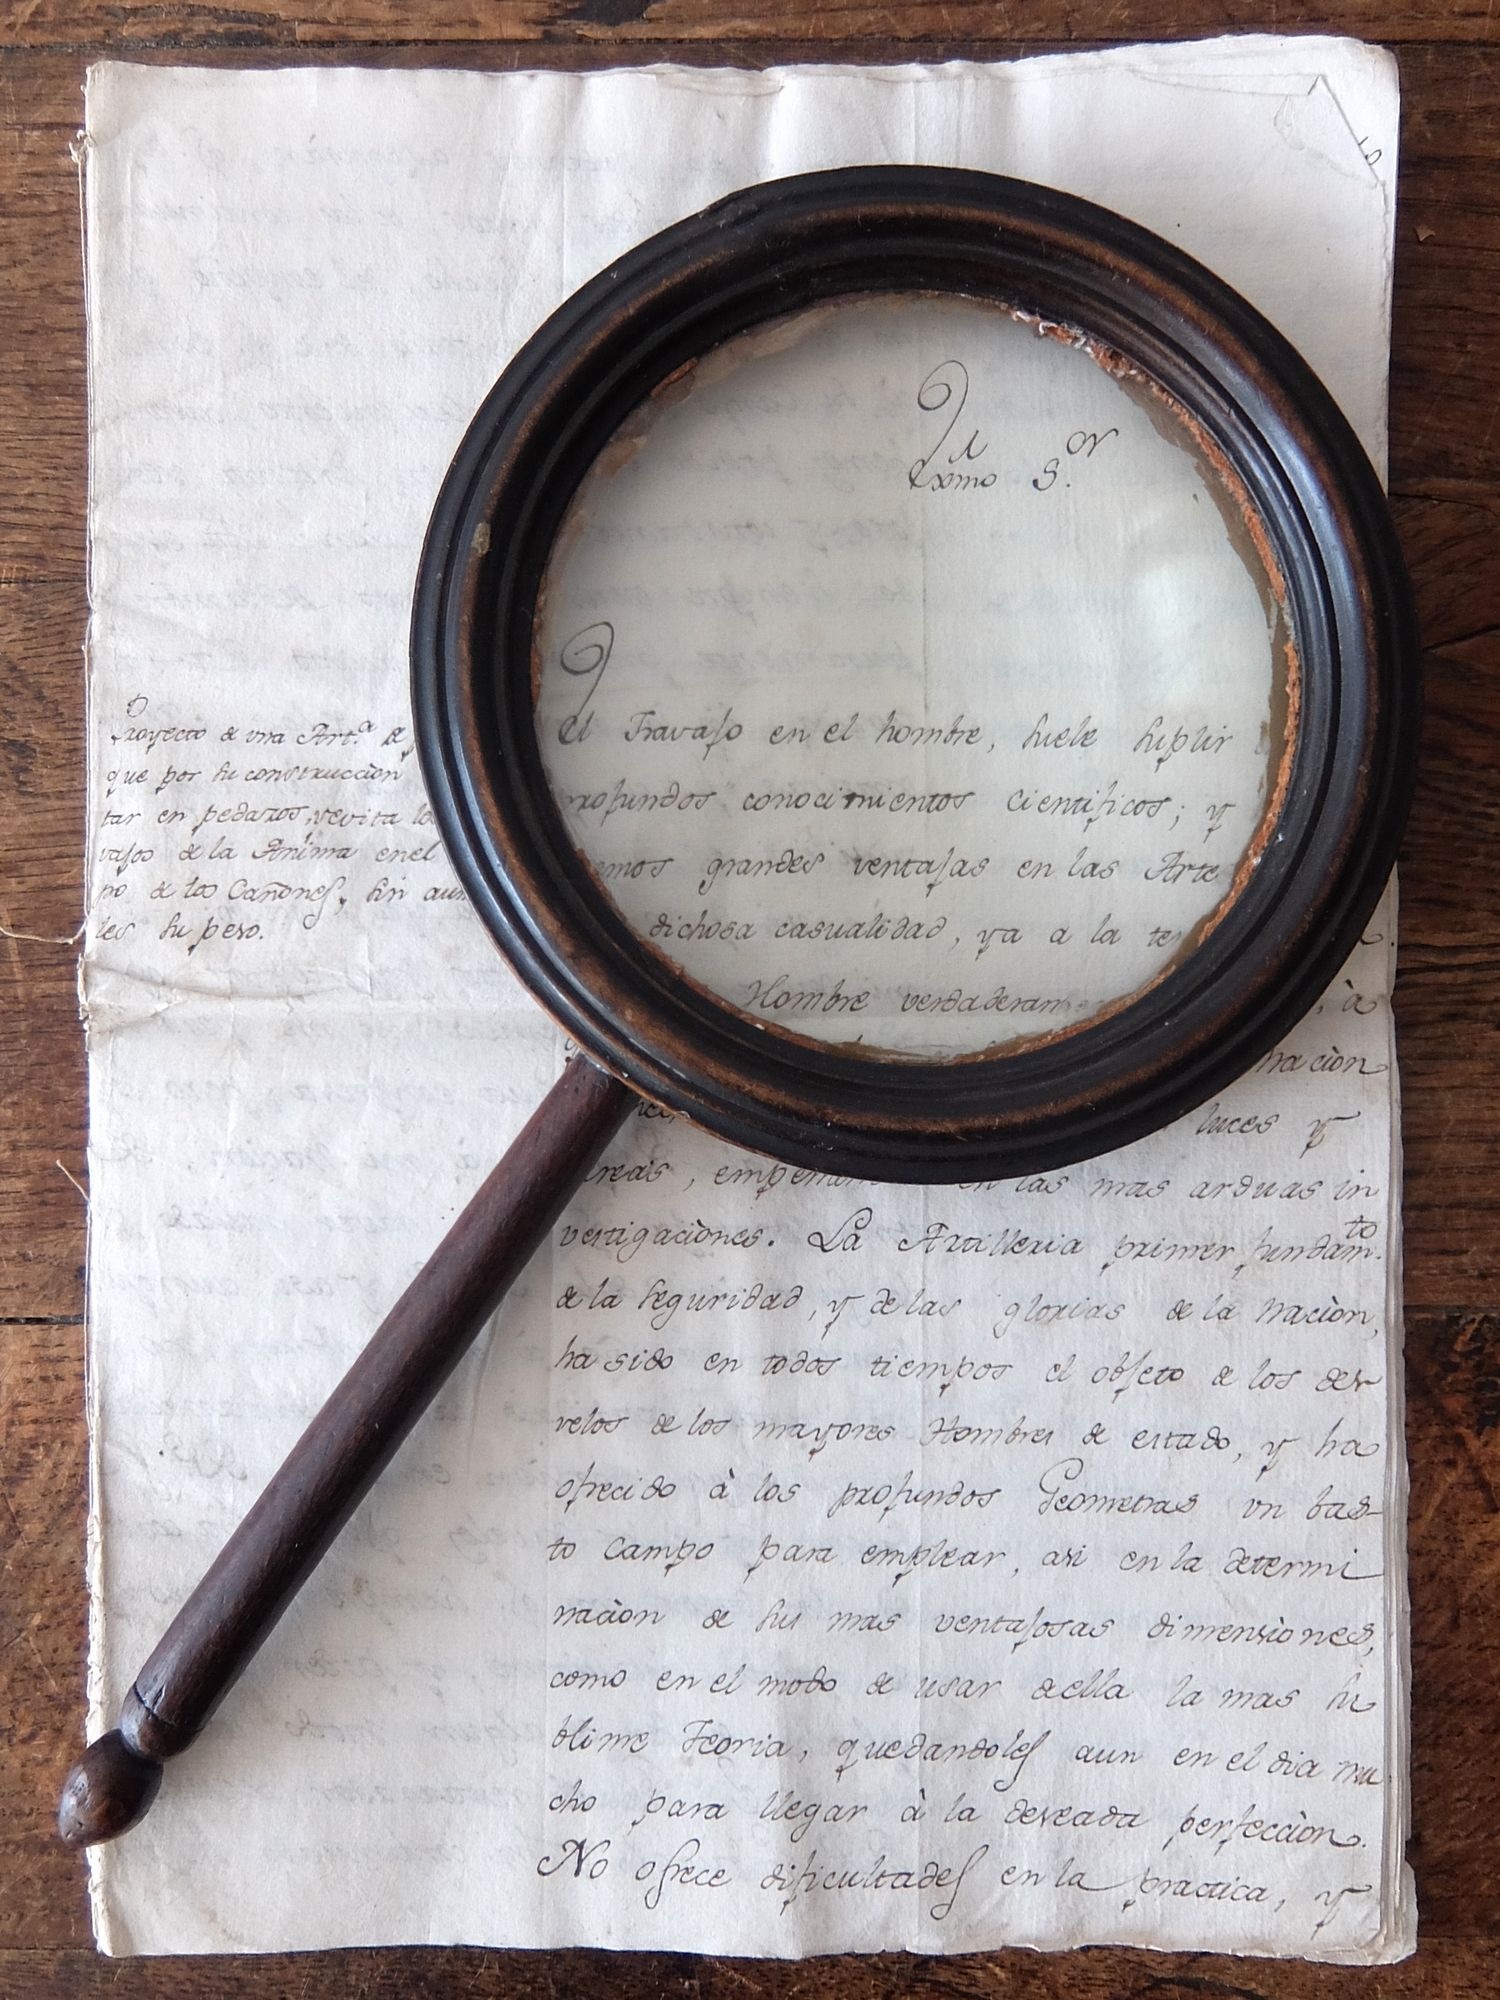 Exmo S.or
Proyecto de vna Art.a de
que por su construccion
tar en pedazos, y evita lo
vajos de la Anima en el
po de los Cañones, sin aum
les su peso.
El Travajo en el hombre, suele suplir
rofundos conocimientos cientificos; y
emos grandes ventajas en las Arte
dichosa casualidad, ya a la te
Hombre verdaderam , à
nacion
luces y
areas, empeñ en las mas arduas in
vestigaciones. La Artilleria primer fundam.to
de la seguridad, y de las glorias de la nacion,
ha sido en todos tiempos el objeto de los des
velos de los mayores Hombres de estado, y ha
ofrecido à los profundos Geometras vn bas-
to campo para emplear, asi en la determi
nacion de sus mas ventajosas dimensiones,
como en el modo de usar de ella la mas su
blime Teoria, quedandoles aun en el dia mu
cho para llegar à la deseada perfeccion.
No ofrece dificultades en la practica, y